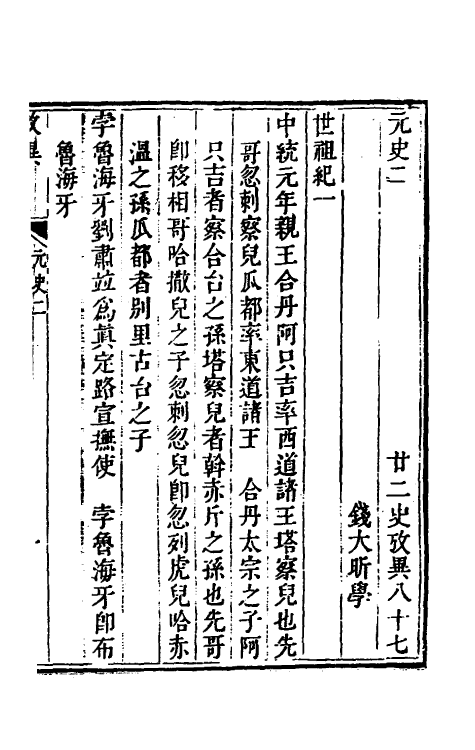 元史二 廿二史攷異八十七
錢大昕學
世祖紀一
中統元年親王合丹阿只吉率西道諸王塔察兒也先
哥忽剌察兒瓜都率東道諸王 合丹太宗之子阿
只吉者察合台之孫塔察兒者斡赤斤之孫也先哥
卽移相哥哈撒兒之子忽剌忽兒卽忽列虎兒哈赤
溫之孫瓜都者別里古台之子
孛魯海牙劉肅竝爲眞定路宣撫使 孛魯海牙卽布
魯海牙
元史二